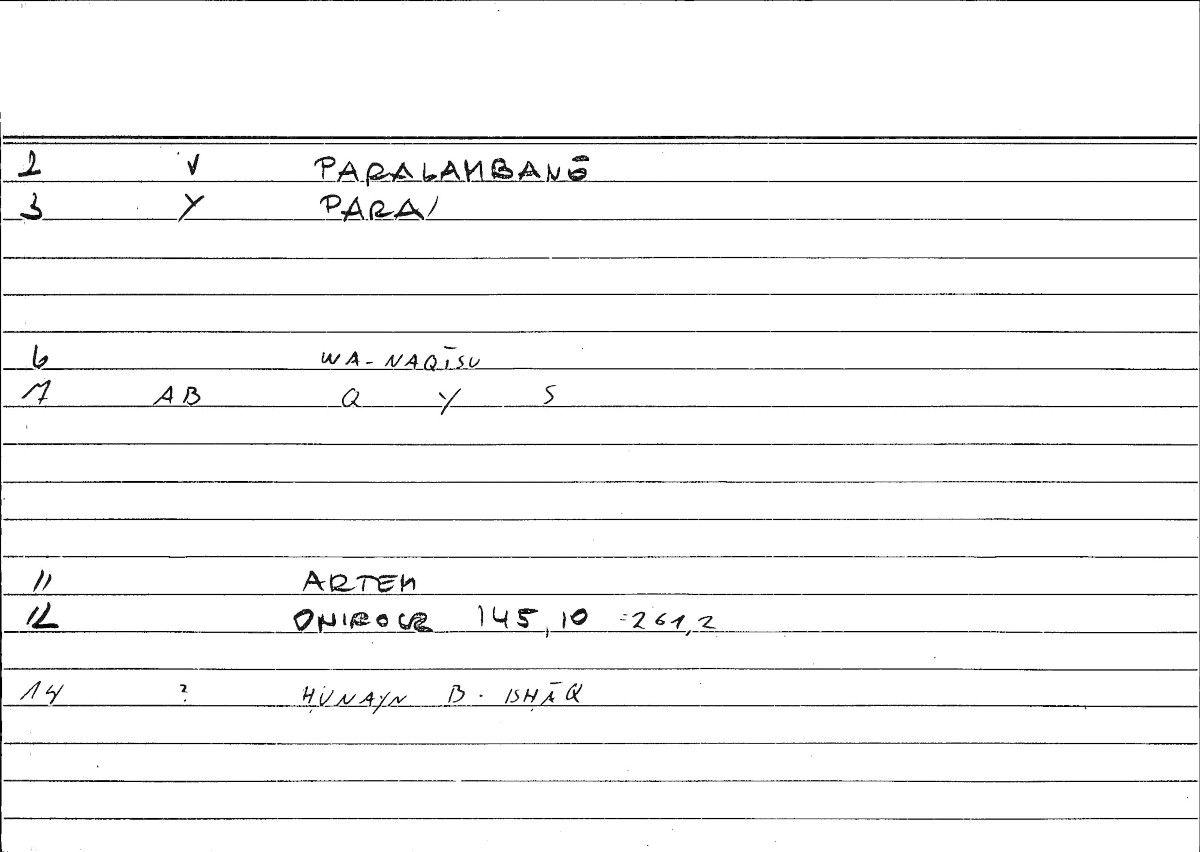 2 V PARALAMBANŌ
3 Y PARA/
6 WA-NAQĪSU
7 AB Q Y S
11 ARTEM
12 ONIROCR 145,10 =261,2
14 ? ḤUNAYN B. ISḤĀQ